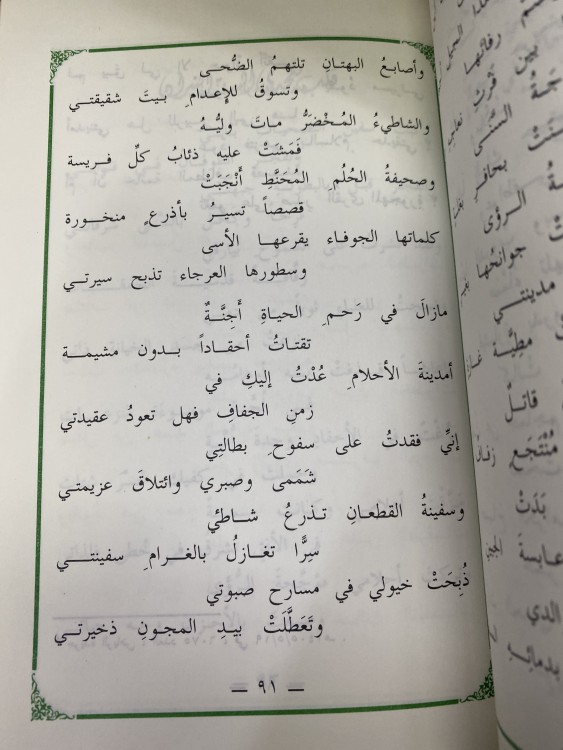 وأصابعُ البهتانِ تلتهمُ الضُّحى
وتسوقُ للإعدامِ بيتَ شقيقتي
والشاطيءُ المُخْضَرُّ ماتَ وليُّهُ
فَمَشَتْ عليه ذئابُ كلِّ فريسة
وصحيفةُ الحُلُمِ المُحَنَّطِ أَنْجَبَتْ
قصصاً تسيرُ بأذرعٍ منخورة
كلماتها الجوفاء يقرعها الأسى
وسطورها العرجاء تذبح سيرتي
مازالَ في رَحمِ الحياةِ أَجِنَّةٌ
تقتاتُ أحقاداً بدون مشيمة
أمدينةَ الأحلامِ عُدْتُ إليكِ في
زمنِ الجفافِ فهل تعودُ عقيدتي
إنيِّ فقدتُ على سفوحِ بطالتِي
شَمَمى وصبري وائتلاقَ عزيمتي
وسفينةُ القطعانِ تذرعُ شاطئي
سِرًّا تغازلُ بالغرامِ سفينتي
ذُبِحَتْ خيولي في مسارح صبوتي
وتَعَطَّلَتْ بيدِ المجونِ ذخيرتي
— ٩١ —
رفاقها
بين
بحافر
الرؤى
جوانحُها
مدينتي
مطيَّة
قاتلٌ
مُنْتَجَعٍ
بَدَتْ
عابسةَ
الذي